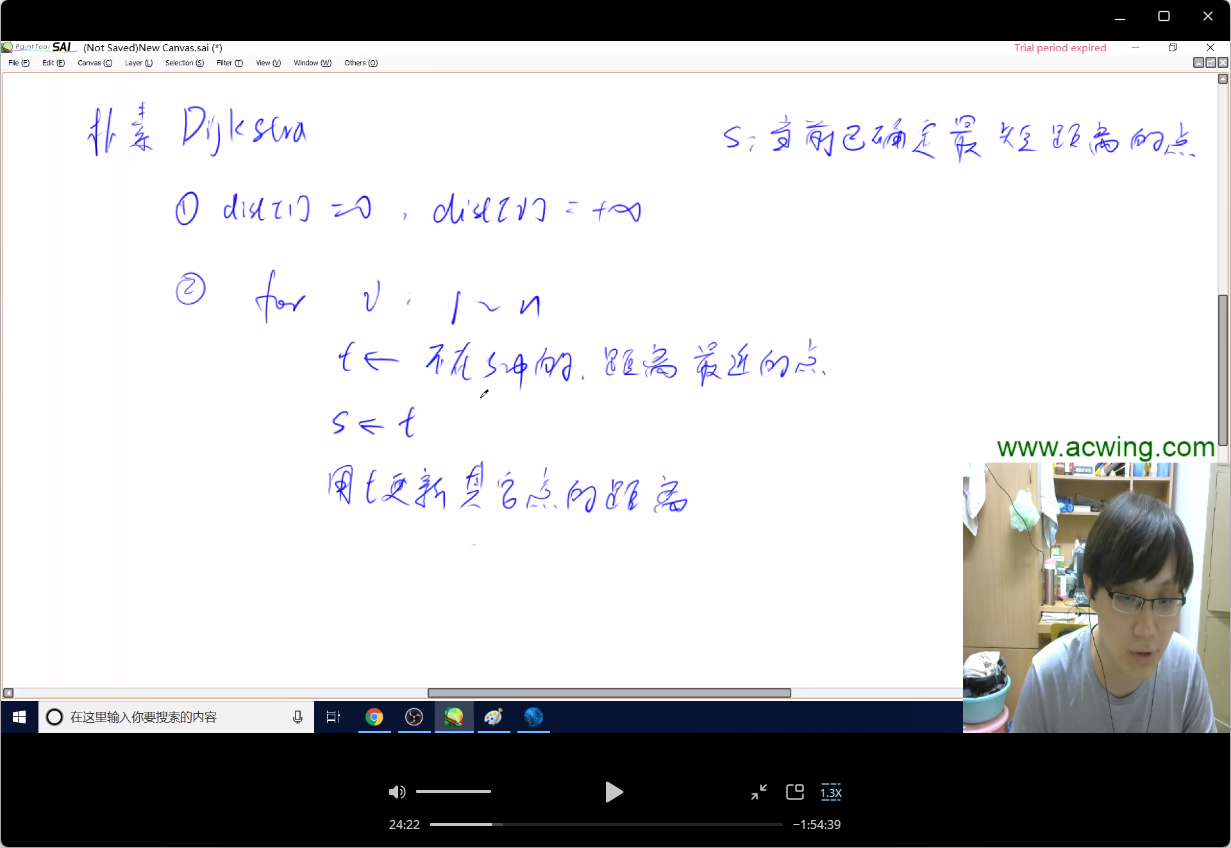 PaintTool SAI (Not Saved)New Canvas.sai (*) Trial period expired
File (F) Edit (E) Canvas (C) Layer (L) Selection (S) Filter (T) View (V) Window (W) Others (O)
朴素 Dijkstra
S: 当前已确定最短距离的点
① dist[1] = 0, dist[v] = +∞
② for v: 1 ~ n
t ← 不在S中的, 距离最近的点
S ← t
用t更新其它点的距离
www.acwing.com
在这里输入你要搜索的内容
1.3X
24:22 −1:54:39